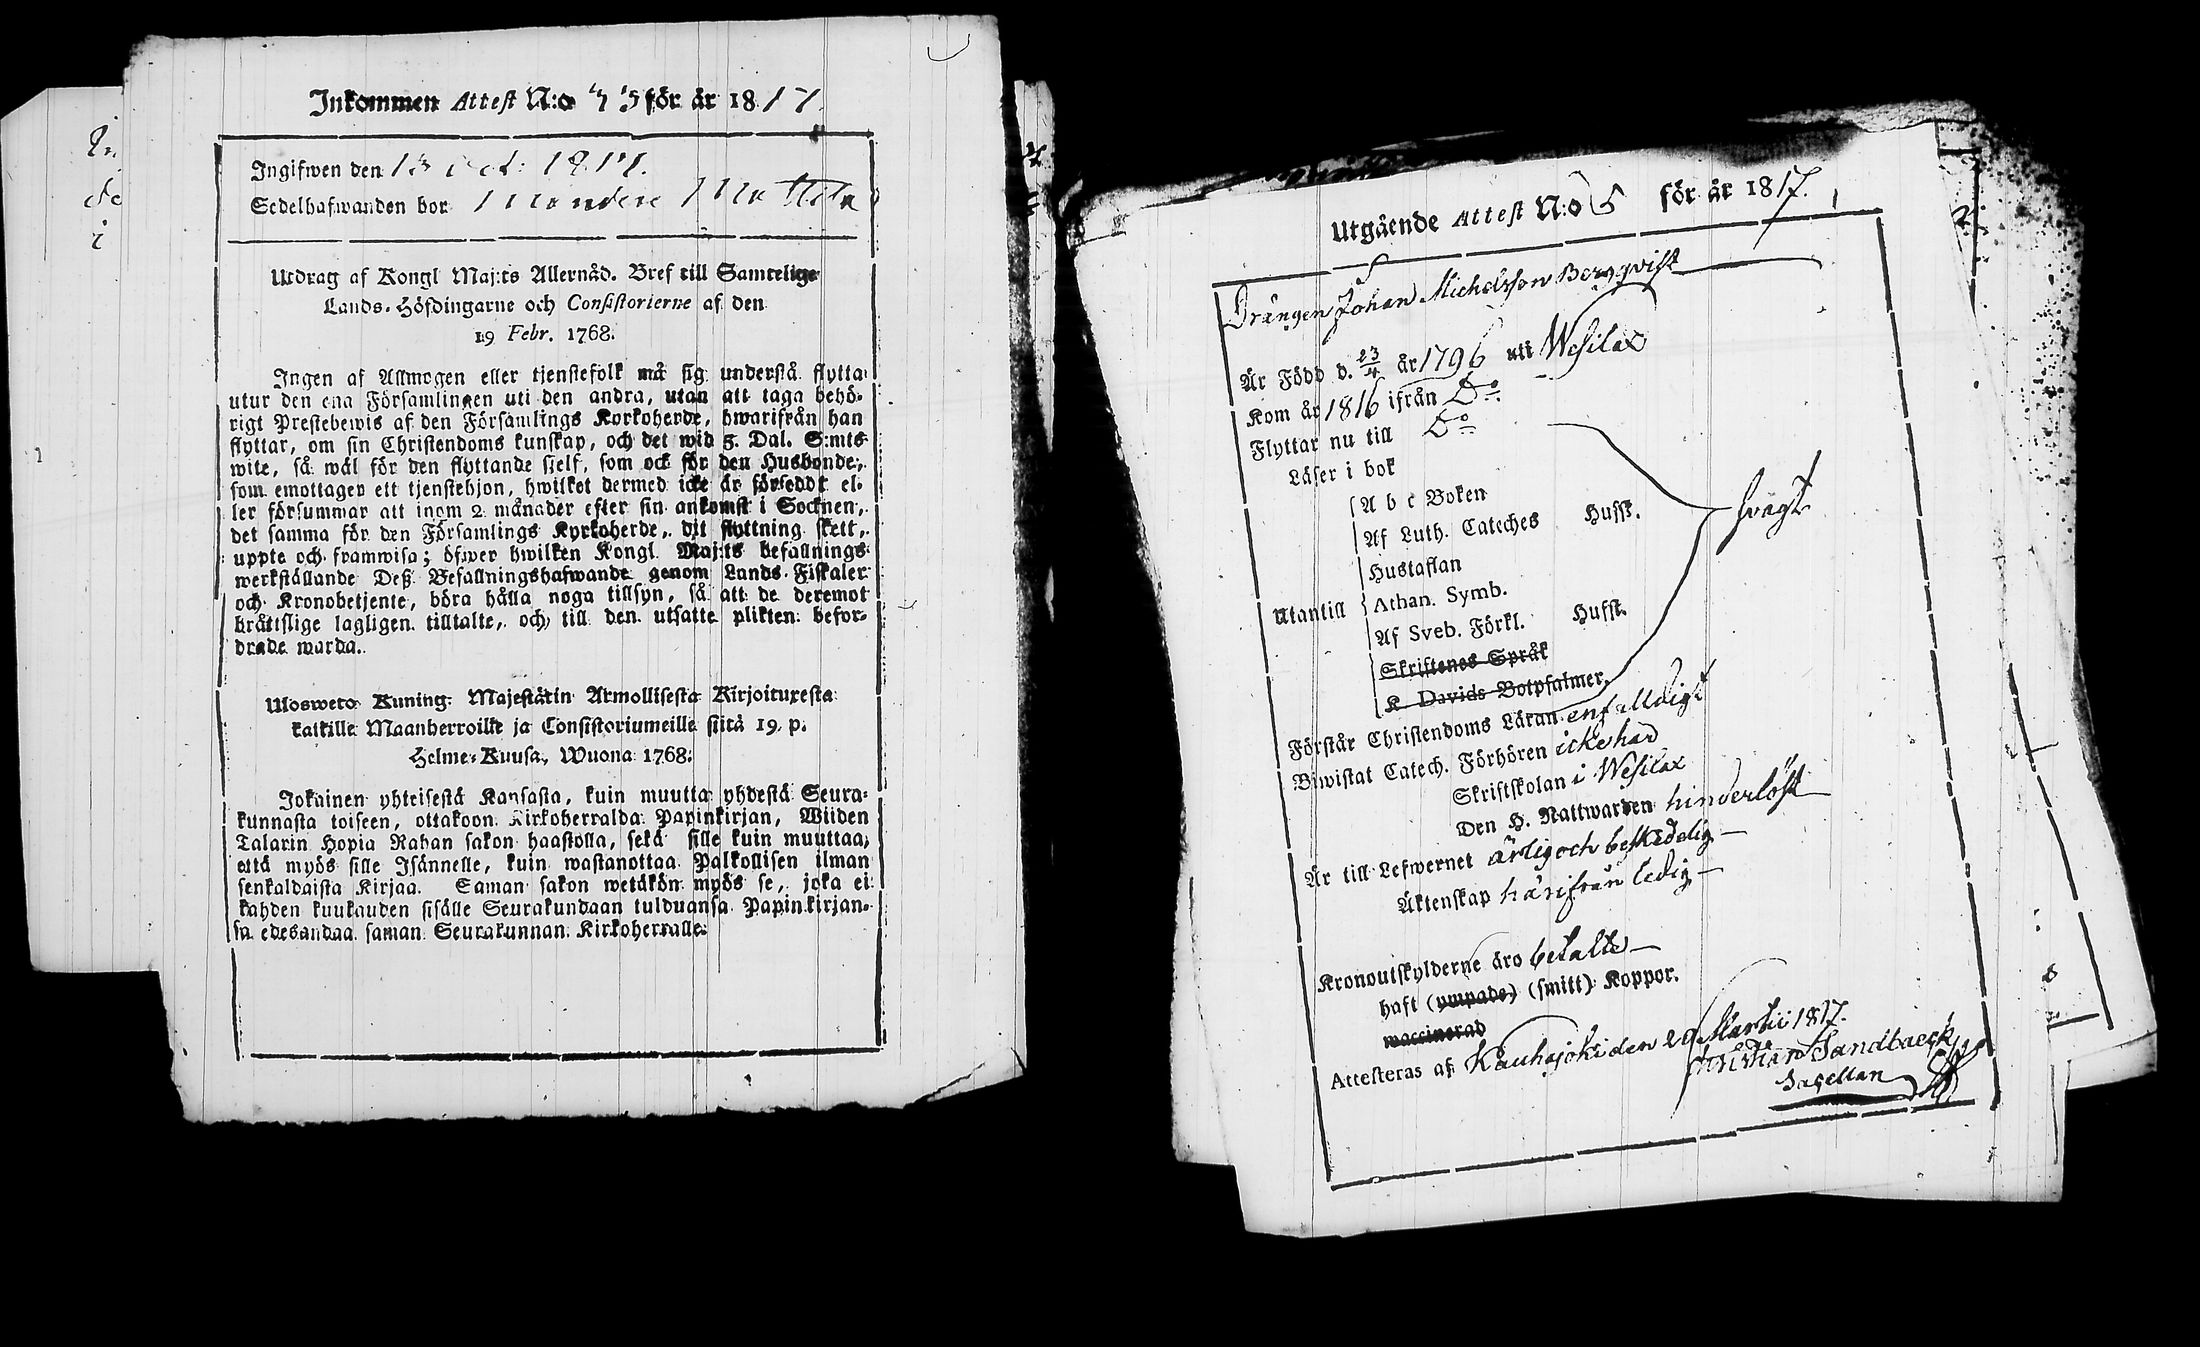 Inkommen Attest N:o 45 för år 1817.
Ingifwen den 13 Oct: 1817.
Sedelhafwanden bor
Utdrag af Kongl Maj:ts Allernåd. Bref till Samtelige
Lands-Höfdingarne och Consistorierne af den
19 Febr. 1768.
Ingen af Allmogen eller tjenstefolk må sig understå flytta
utur den ena Församlingen uti den andra, utan att taga behö-
rigt Prestebewis af den Församlings Korkoherde, hwarifrån han
flyttar, om sin Christendoms kunskap, och det wid 5. Dal. S:mts
wite, så wäl för den flyttande sjelf, som ock för den Husbonde,
som emottager ett tjenstehjon, hwilket dermed icke är förseddt el-
ler försummar att inom 2 månader efter sin ankomst i Socknen,
det samma för den Församlings Kyrkoherde, dit flyttning skett,
uppte och framwisa; öfwer hwilken Kongl Maj:ts befallnings
werkställande Deß Befallningshafwande genom Lands-Fiskaler
och Kronobetjente, böra hålla noga tillsyn, så att de deremot
bråttslige lagligen tilltalte, och till den utsatte plikten befor-
drade warda.
Ulosweto Kuning: Majestätin Armollisesta Kirjoituxesta
kaikille Maanherroille ja Consistoriumeille siitä 19. p.
Helme-Kuusa, Wuona 1768:
Jokainen yhteisestä Kansasta, kuin muutta yhdestä Seura-
kunnasta toiseen, ottakoon Kirkoherralda Papinkirjan, Wiiden
Talarin Hopia Rahan sakon haastolla, sekä sille kuin muuttaa,
että myös sille Isännelle, kuin wastanottaa Palkollisen ilman
senkaldaista Kirjaa. Saman sakon wetäkön myös se, joka ei
kahden kuukauden sisälle Seurakundaan tulduansa Papin kirjan-
sa edesandaa saman Seurakunnan Kirkoherralle.
Utgående Attest N:o 5 för år 1817.
Drängen Johan Michelsson Bergqvist
Är Född d. 23/4 år 1796 uti Wesilax
Kom år 1816 ifrån Do
Flyttar nu till Do
Läser i bok
A b c Boken
Af Luth. Cateches Husst.
Hustaflan
Utantill Athan. Symb.
Af Sveb. Förkl. Husst.
Skriftenes Språk
K. Davids Botpsalmer.
svagt
Förstår Christendoms Läran enfalldigt
Biwistat Catech. Förhören icke här
Skriftskolan i Wesilax
Den H. Nattwarden hinderlöst
Är till Lefwernet ärlig och beskedelig
Äktenskap härifrån ledig
Kronoutskylderne äro betalte
haft (ympade) (smitt) Koppor.
waccinerad
Attesteras af Kauhajoki den 29 Martii 1817.
Sandbaeck
Sacellan